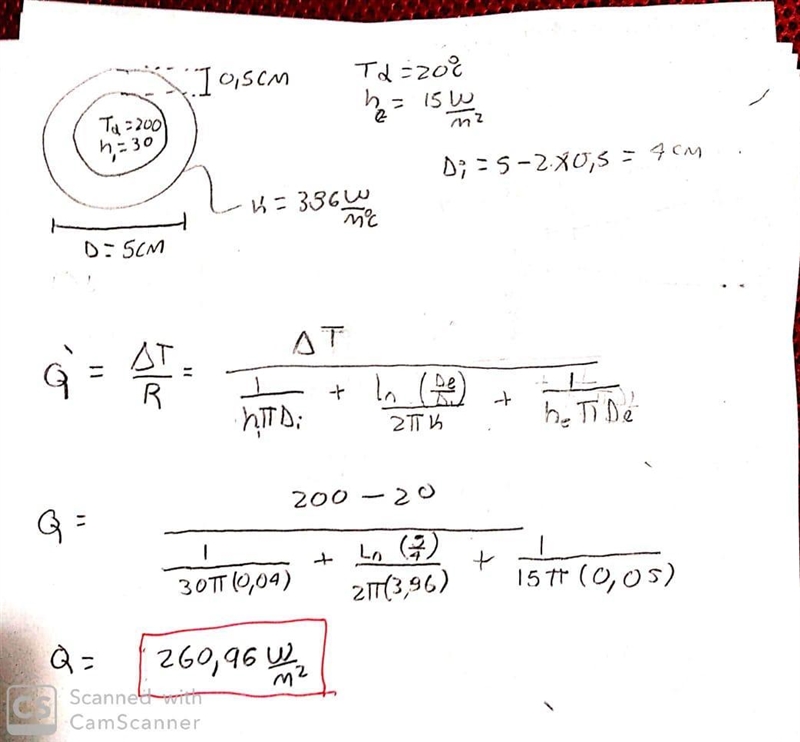 0,5CM
Td = 20°C
Td = 200
h₁ = 30
h₂ = 15 W/m²
Di = 5 - 2.x0,5 = 4 CM
K = 396 W/m°C
D = 5CM
Q̇ = ΔT/R = ΔT / (1/(h₁πDi) + ln(De/Di)/(2πK) + 1/(hₑπDe))
Q = (200 - 20) / (1/(30π(0,04)) + Ln(5/4)/(2π(3,96)) + 1/(15π(0,05)))
Q = 260,96 W/m²
CS Scanned with
CamScanner